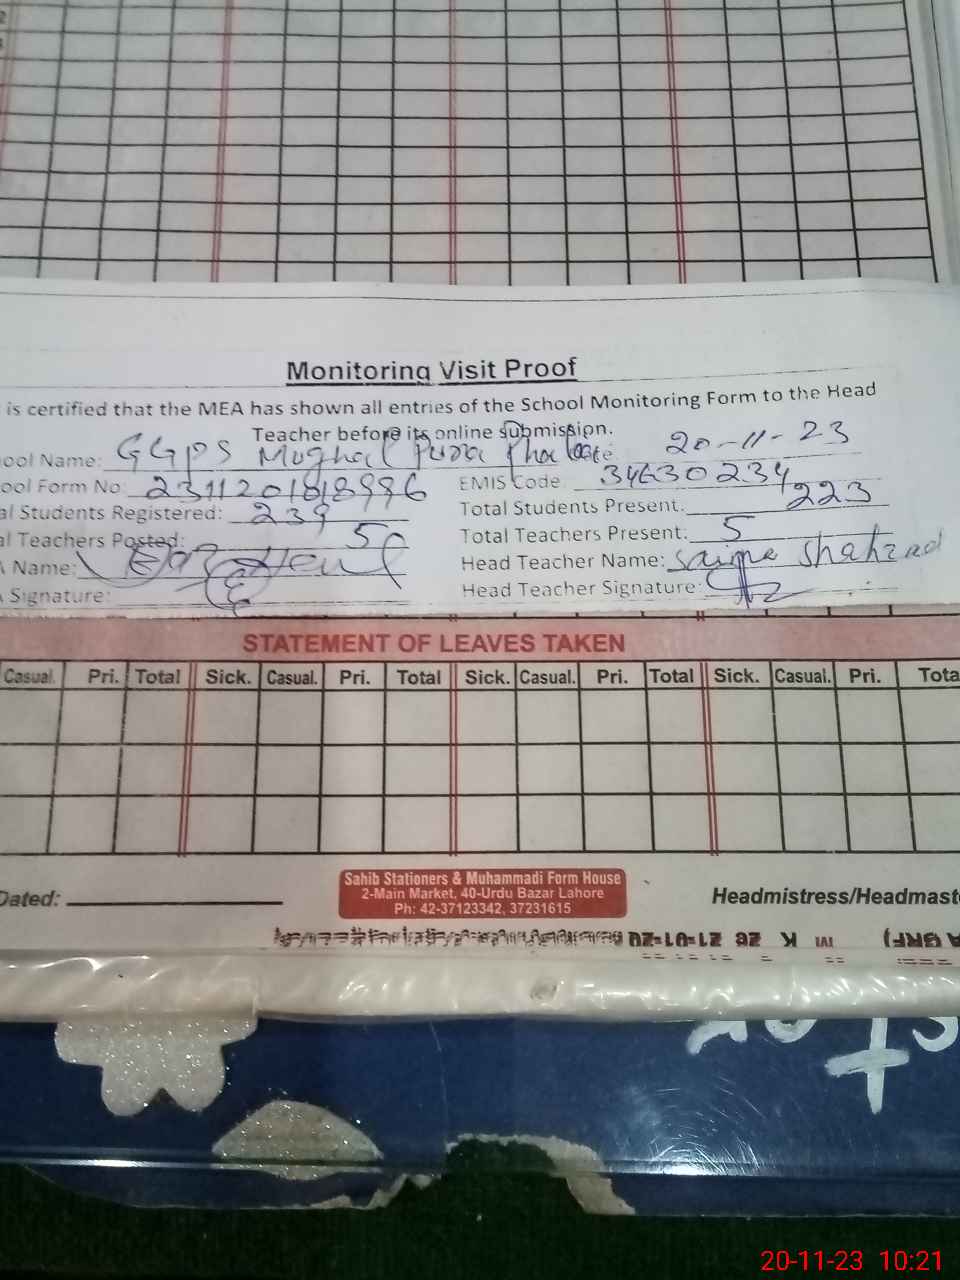 Monitoring Visit Proof
is certified that the MEA has shown all entries of the School Monitoring Form to the Head
Teacher before its online submission.
ool Name: GGPS Mughal Pura Date 20-11-23
ool Form No: 2311201818996 EMIS Code. 34630234
al Students Registered: 239 Total Students Present. 223
al Teachers Posted: 5 Total Teachers Present: 5
Name: Head Teacher Name: Saima Shahzad
Signature: Head Teacher Signature:
STATEMENT OF LEAVES TAKEN
Casual. Pri. Total Sick. Casual. Pri. Total Sick. Casual. Pri. Total Sick. Casual. Pri. Tota
Dated: Headmistress/Headmast
Sahib Stationers & Muhammadi Form House
2-Main Market, 40-Urdu Bazar Lahore
Ph: 42-37123342, 37231615
20-11-23 10:21